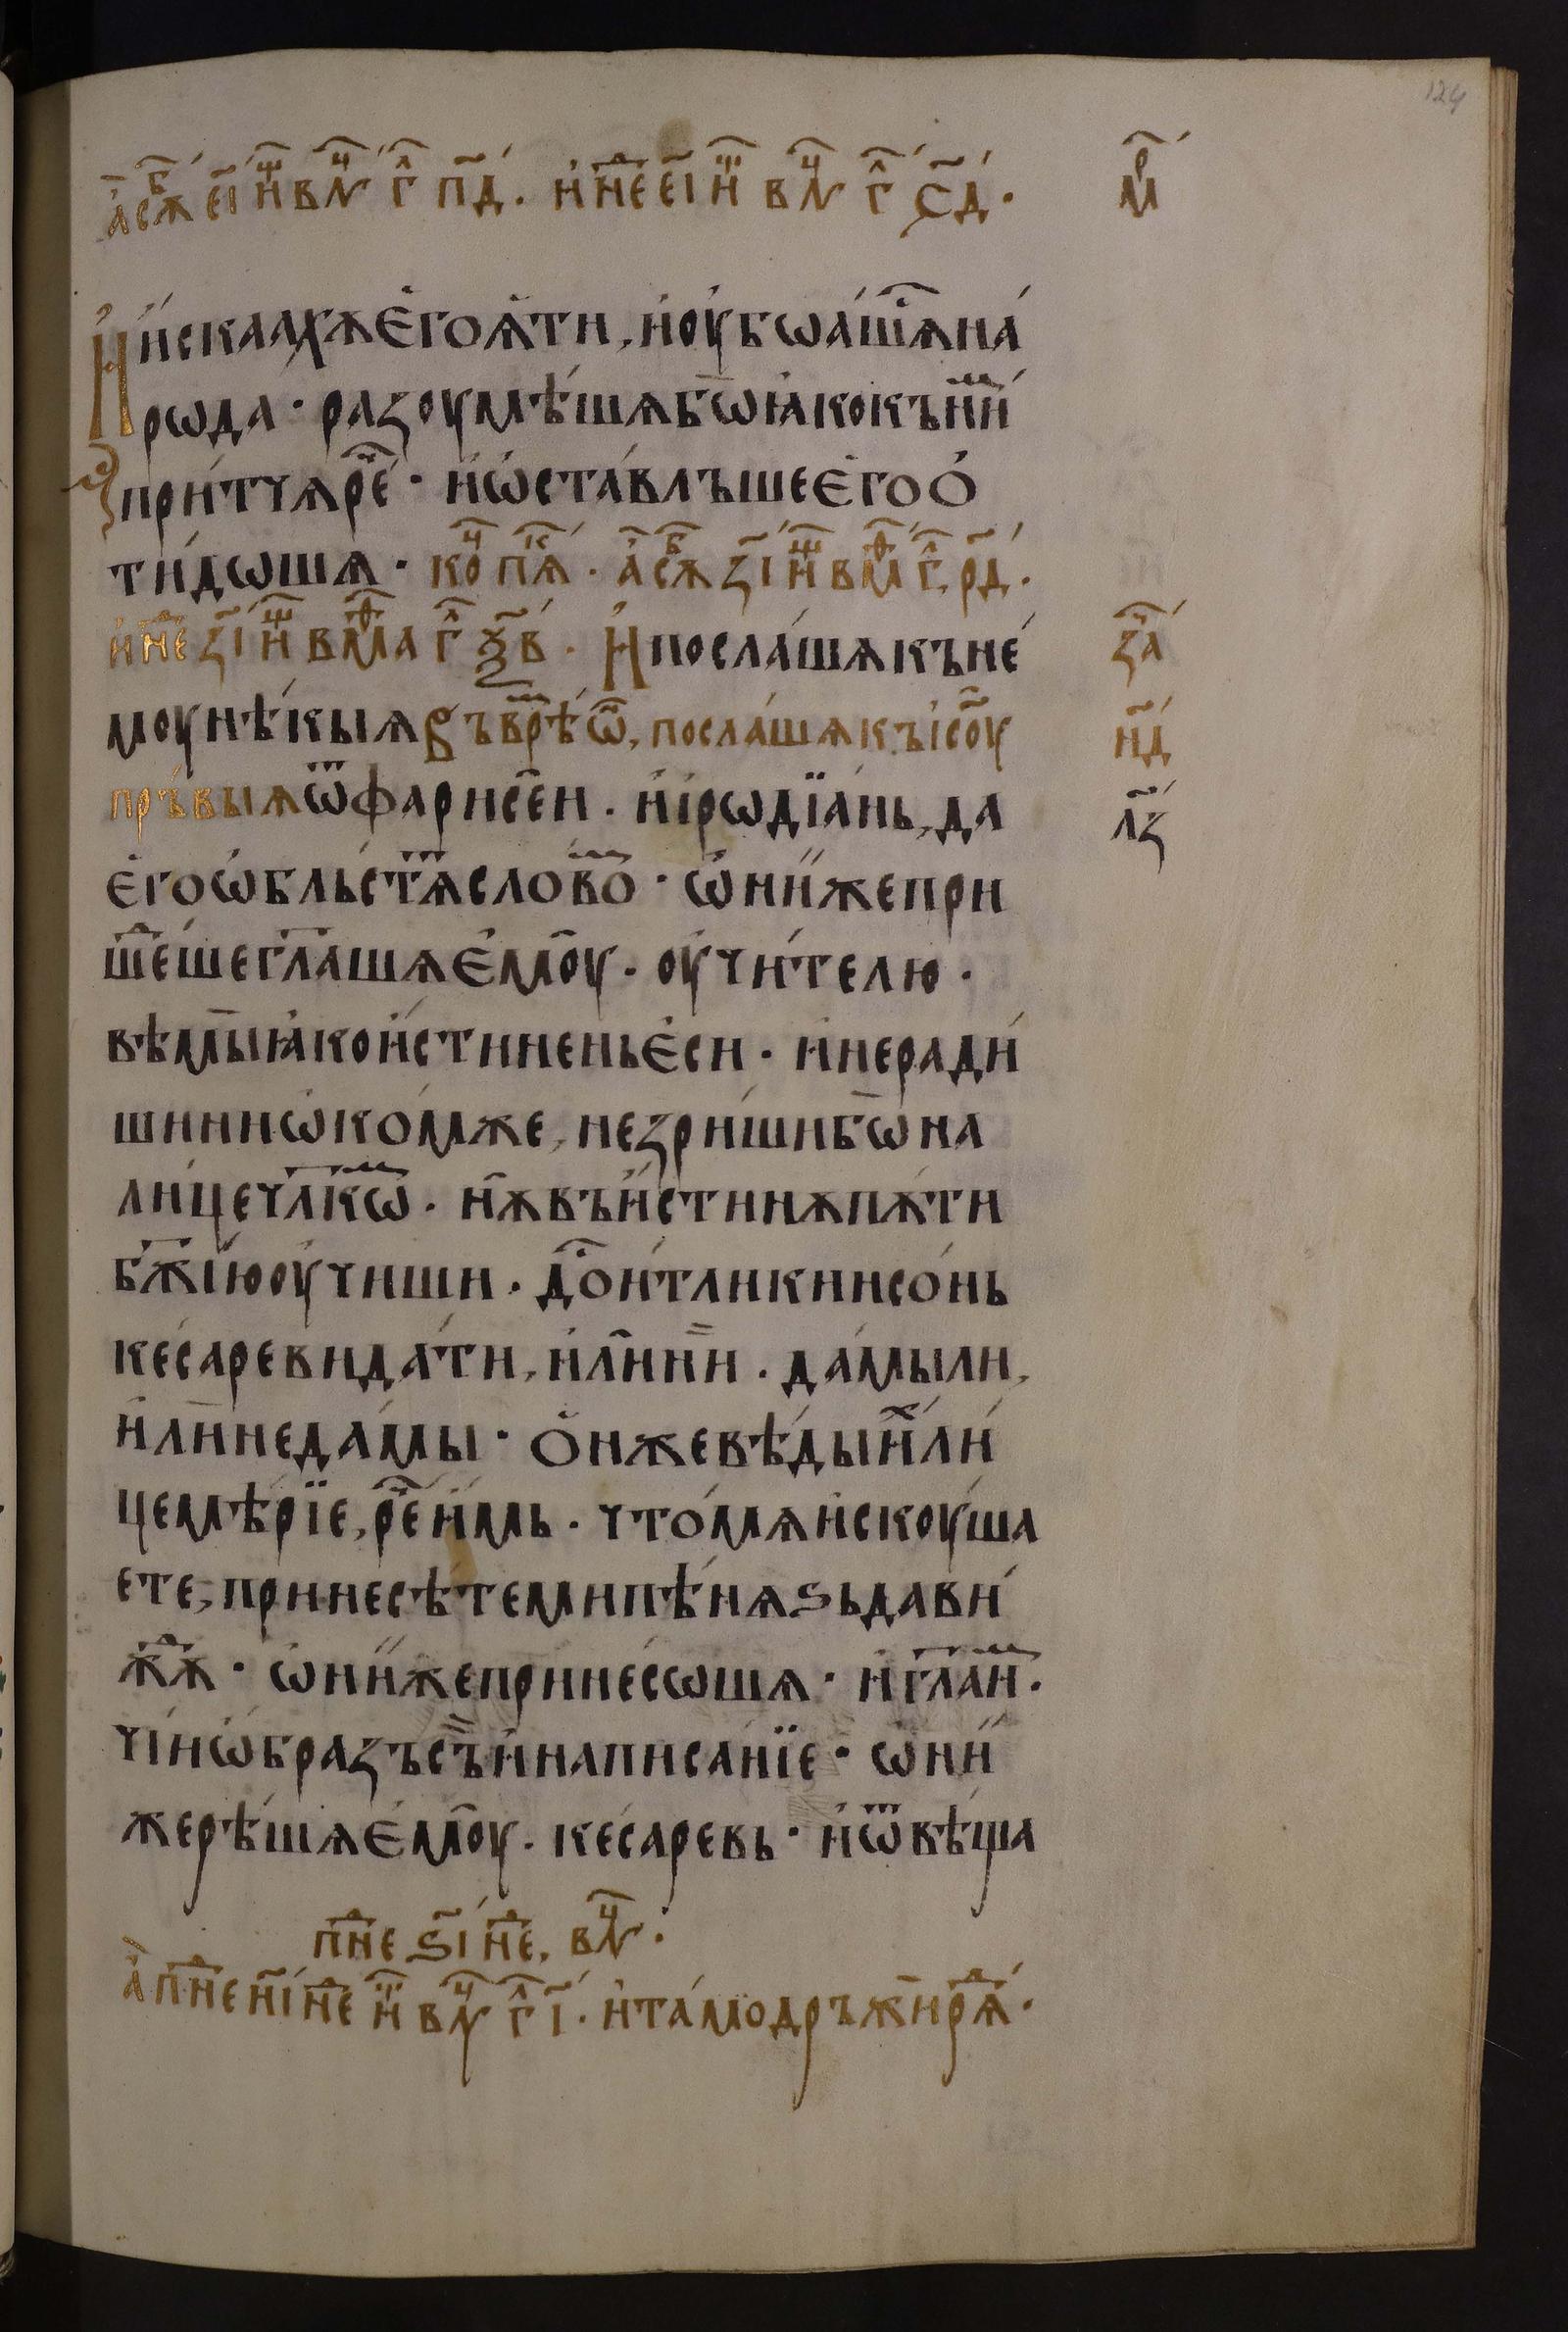 124
а҆ сѫⷠ҇ е҃і и҆ⷲ҇ вⷱ҇ гⷧ҇ п҃д · и҆ нⷣ҇е е҃і и҆ⷲ҇ вⷱ҇ гⷧ҇ с҃д ·
мрⷦ
И҆ и҆скаахѫ є҆го ѩ҆ти, и҆ оу҆бѡа́шѧⷭ҇ на́
рѡда · разоумѣ́шѧ бѡ ꙗ҆ко къ ни́ⷨ
при́тчѫ рⷱ҇е · и҆ ѡ҆ста́влъше є҆го ѻ҆
ти́дѡшѧ · коⷱ҇ пⷦ҇ѧ · а҆ сѫⷠ҇ з҃і и҆ⷲ҇ вⷨ҇а гⷧ҇ р҃д ·
и҆ нⷣ҇е з҃і и҆ⷲ҇ вⷨ҇а гⷧ҇ ѯ҃в · И҆ посла́шѧ къ не́
моу нѣ́кыѧ Въ врⷨ҇ѣ ѡ҆ⷩ҇, посла́шѧ къ і҆с҃оу
пръ́выѧ ѿ фарисе́и · и҆ і҆рѡдїа́нь, да
є҆го ѡ҆бльстѧ́ⷮ словоⷨ · ѡ҆ни́и же при
шеⷣ́ше гл҃ашѧ є҆моу · оу҆чи́телю ·
вѣмы ꙗ҆ко и҆́стиненъ є҆си · и҆ не ради́
ши ни ѡ҆ комже, не зри́ши бѡ на
ли́це чл҃кѡⷨ · нѫ въ и҆́стинѫ пѫти
бж҃і́ю оу҆чиши · доⷭ҇ и́тли кинсо́нь
ке́сареви да́ти, и҆ли ни · да́мы ли,
и҆ли не да́мы · ѻ҆́н же вѣ́ды и҆́ⷯ ли́
цемѣ́рїе, рⷱ҇е и҆́мь · что мѧ и҆скоу́ша
ете, принесѣ́те ми пѣ́нѧѕь да ви́
жⷣѫ · ѡ҆ни́и же прине́сѡшѧ · и҆ гл҃а и҆ⷨ ·
чі́и ѡ҆́бразъ съ́ и҆ написа́нїе · ѡ҆ни́и
же рѣ́шѧ є҆моу · ке́саревь · и҆ ѿвѣ́ща
зⷱ҇а
н҃д
л҃з
пⷩ҇е ѕ҃і нⷣ҇е, вⷱ҇ ·
а҆ пⷩ҇е и҃і нⷣ҇е и҆ⷲ҇ вⷱ҇ гⷧ҇ і҃ · и҆ та́мо дръжи́ рѧⷣ ·